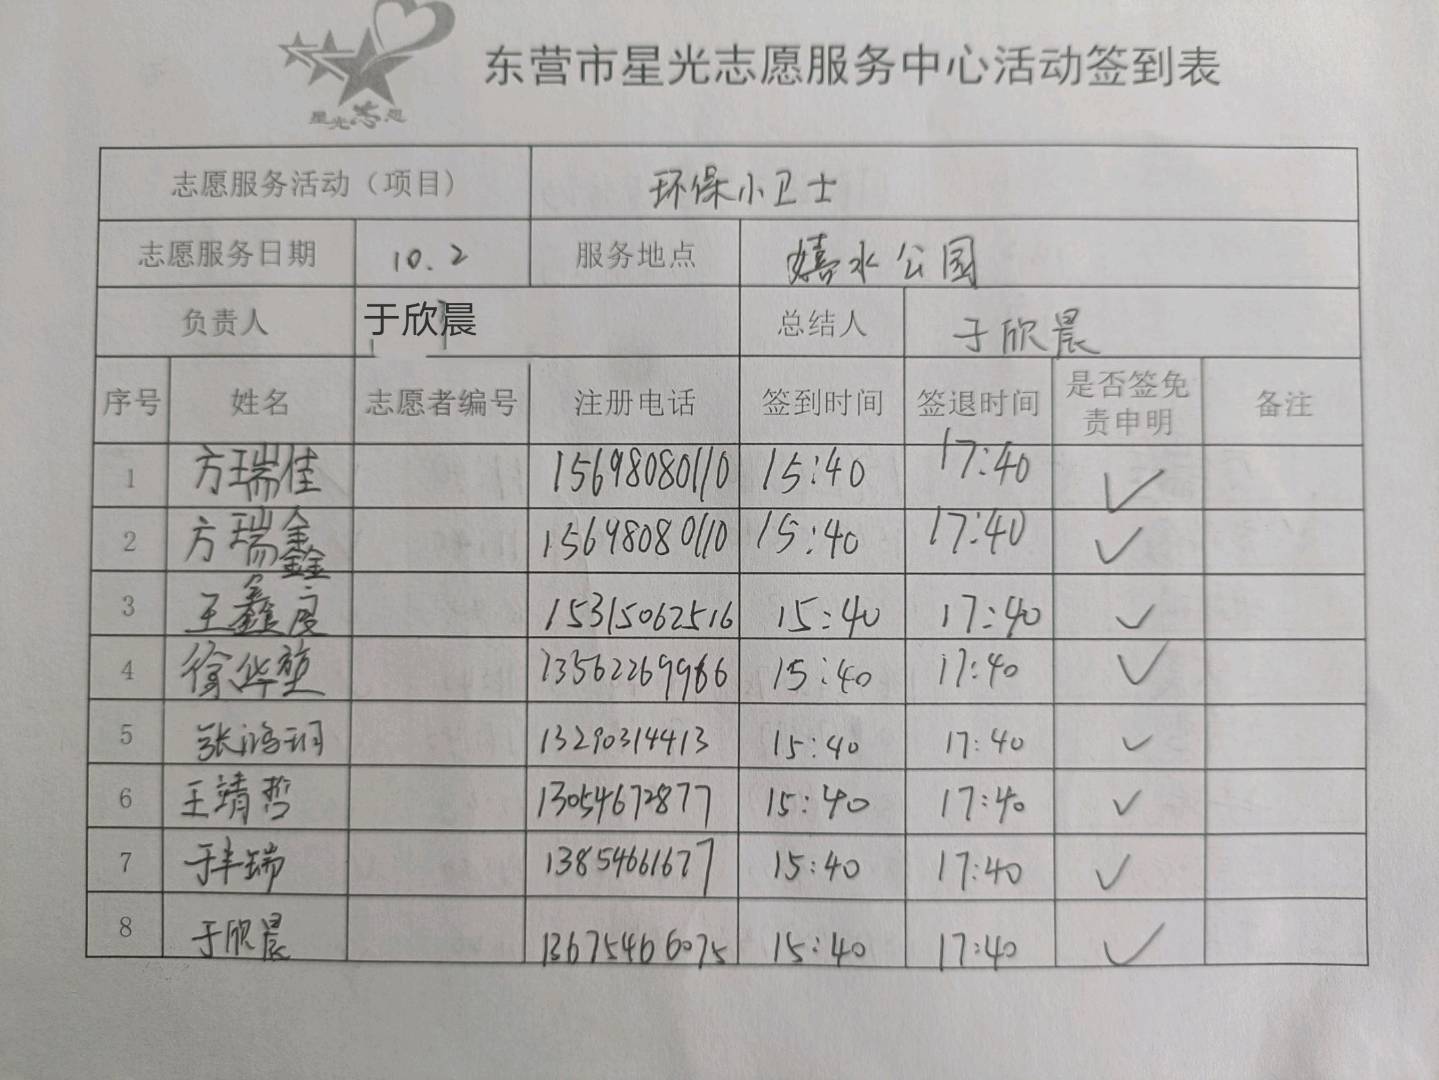 星光志愿
东营市星光志愿服务中心活动签到表
志愿服务活动（项目） 环保小卫士
志愿服务日期 10.2 服务地点 嬉水公园
负责人 于欣晨 总结人 于欣晨
序号 姓名 志愿者编号 注册电话 签到时间 签退时间 是否签免责申明 备注
1 方瑞佳 15698080110 15:40 17:40 ✓
2 方瑞鑫 15698080110 15:40 17:40 ✓
3 王鑫度 15315062516 15:40 17:40 ✓
4 徐华堃 13562269966 15:40 17:40 ✓
5 张鸿玥 13290314413 15:40 17:40 ✓
6 王靖哲 13054672877 15:40 17:40 ✓
7 于丰瑞 13854661677 15:40 17:40 ✓
8 于欣晨 13675466075 15:40 17:40 ✓